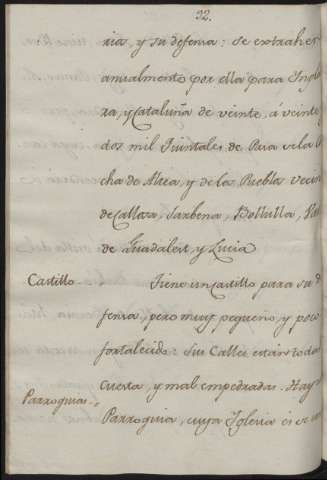 92.
ria, y su defensa: se extrahen
anualmente por ella para Ingla
rra, y Cataluña de veinte, á veinte y
dos mil Quintales de
cha de Altea, y de los Pueblos vecin
de Callosa, Tarbena, Bollulla,
de Guadalest, y Lucia
Castillo. Tiene un castillo para su d
fensa, pero muy pequeño, y poco
fortalecido: Sus Calles están todas
cuesta, y mal empedradas. Hay
Parroquias. Parroquia, cuya Iglesia es de